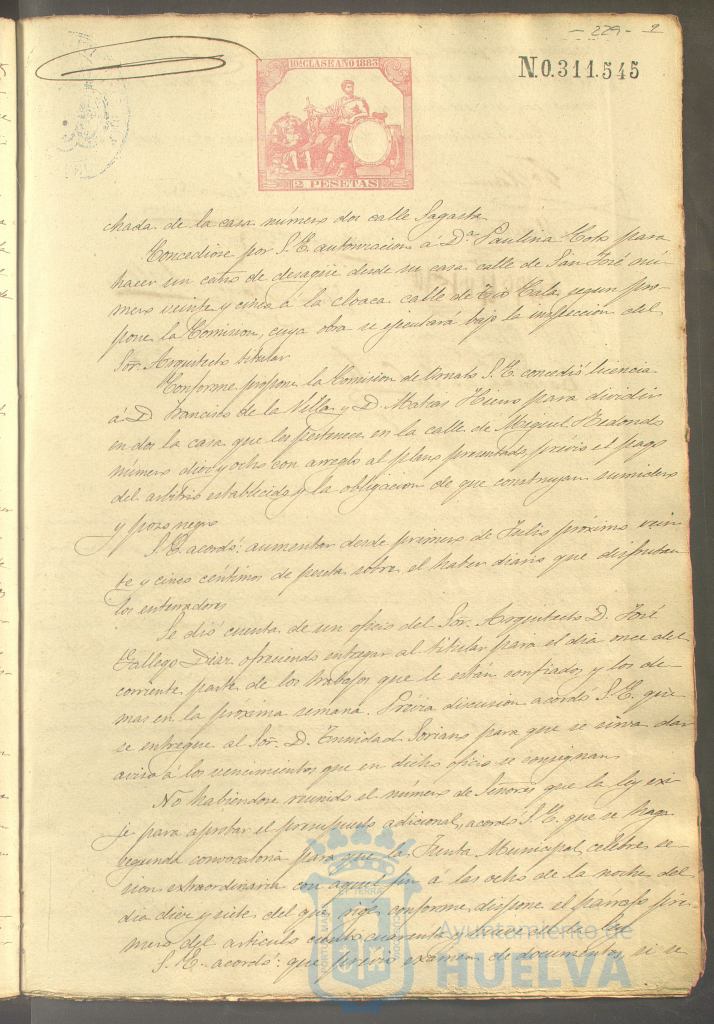 - 229 - 9
10ª CLASE AÑO 1883
N.0.311.545
2 PESETAS
chada de la casa número dos calle Sagasta
Concediose por S. E. autorizacion á Dª Paulina Coto para
hacer un caño de desagüe desde su casa calle de San José nú-
mero veinte y cinco á la cloaca calle de Tio Cala, segun pro-
pone la Comision, cuya obra se ejecutará bajo la inspeccion del
Sor. Arquitecto titular
Conforme propone la Comision de Ornato S. E. concedió licencia
á D. Francisco de la Villa y D. Matias Hierro para dividir
en dos la casa que les pertenece en la calle de Miguel Redondo
número diez y ocho con arreglo al plano presentado previo el pago
del arbitrio establecido y la obligacion de que construyan sumidero
y pozo negro
S. E. acordó: aumentar desde primero de Julio próximo vein-
te y cinco céntimos de peseta sobre el haber diario que disfrutan
los enterradores
Se dió cuenta de un oficio del Sor. Arquitecto D. José
Gallego Diaz ofreciendo entregar al titular para el dia once del
corriente parte de los trabajos que le están confiados y los de-
mas en la próxima semana. Prévia discusion acordó S. E. que
se entregue al Sor. D. Trinidad Soriano para que se sirva dar
aviso á los vencimientos que en dicho oficio se consignan
No habiendose reunido el número de Señores que la ley exi-
je para aprobar el presupuesto adicional, acordó S. E. que se haga
segunda convocatoria para que la Junta Municipal celebre se-
sion extraordinaria con aquel fin á las ocho de la noche del
dia diez y siete del que rige conforme dispone el párrafo pri-
mero del articulo ciento cuarenta y de la ley
S. E. acordó: que previo exámen de documentos, si se
Ayuntamiento de
HUELVA